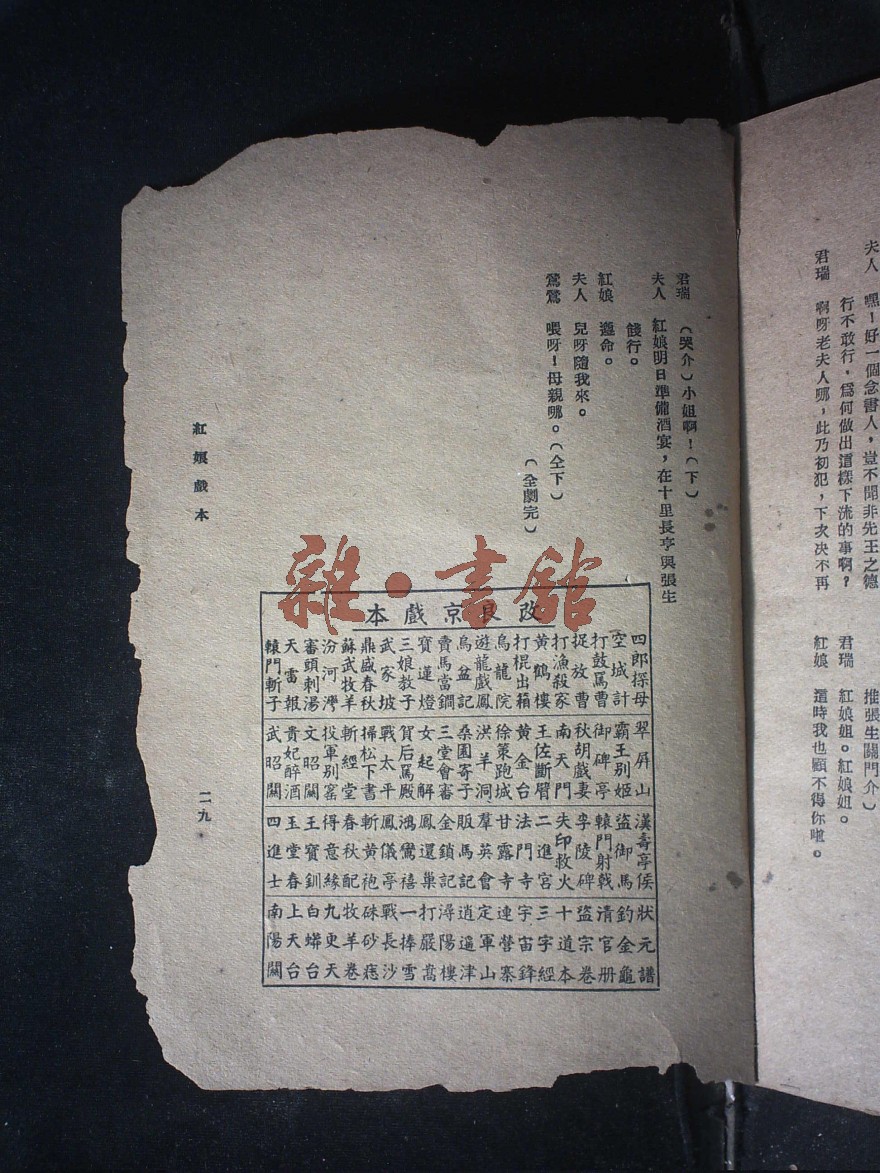 夫人　嘿！好一個念書人，豈不聞非先王之德
行不敢行，爲何做出這樣下流的事啊？
君瑞　啊呀老夫人哪，此乃初犯，下次決不再
推張生關門介）
君瑞　紅娘姐。紅娘姐。
紅娘　這時我也顧不得你啦。
君瑞　（哭介）小姐啊！（下）
夫人　紅娘明日準備酒宴，在十里長亭與張生
餞行。
紅娘　遵命。
夫人　兒呀隨我來。
鶯鶯　喂呀！母親哪。（仝下）
（全劇完）
改良京戲本
四郎探母
空城計
打鼓罵曹
捉放曹
打漁殺家
黃鶴樓
打棍出箱
烏龍院
遊龍戲鳳
烏盆記
賣馬當鐧
寶蓮燈
三娘教子
武家坡
鼎盛春秋
蘇武牧羊
汾河灣
審頭刺湯
天雷報
轅門斬子
翠屏山
霸王別姬
御碑亭
秋胡戲妻
南天門
王佐斷臂
黃金台
徐策跑城
洪羊洞
桑園寄子
三堂會審
女起解
賀后罵殿
戰太平
掃松下書
斬經堂
投軍別窰
文昭關
貴妃醉酒
武昭關
漢壽亭侯
盜御馬
轅門射戟
李陵碑
失印救火
二進宮
法門寺
甘露寺
羣英會
販馬記
金鎖記
鳳還巢
鴻鸞禧
鳳儀亭
斬黃袍
春秋配
得意緣
王寶釧
玉堂春
四進士
狀元譜
釣金龜
清官册
盜宗卷
十道本
三字經
宇宙鋒
連營寨
定軍山
逍遥津
潯陽樓
打嚴嵩
一捧雪
戰長沙
硃砂痣
牧羊卷
九更天
白蟒台
上天台
南陽關
紅娘戲本
二九
雜·書館